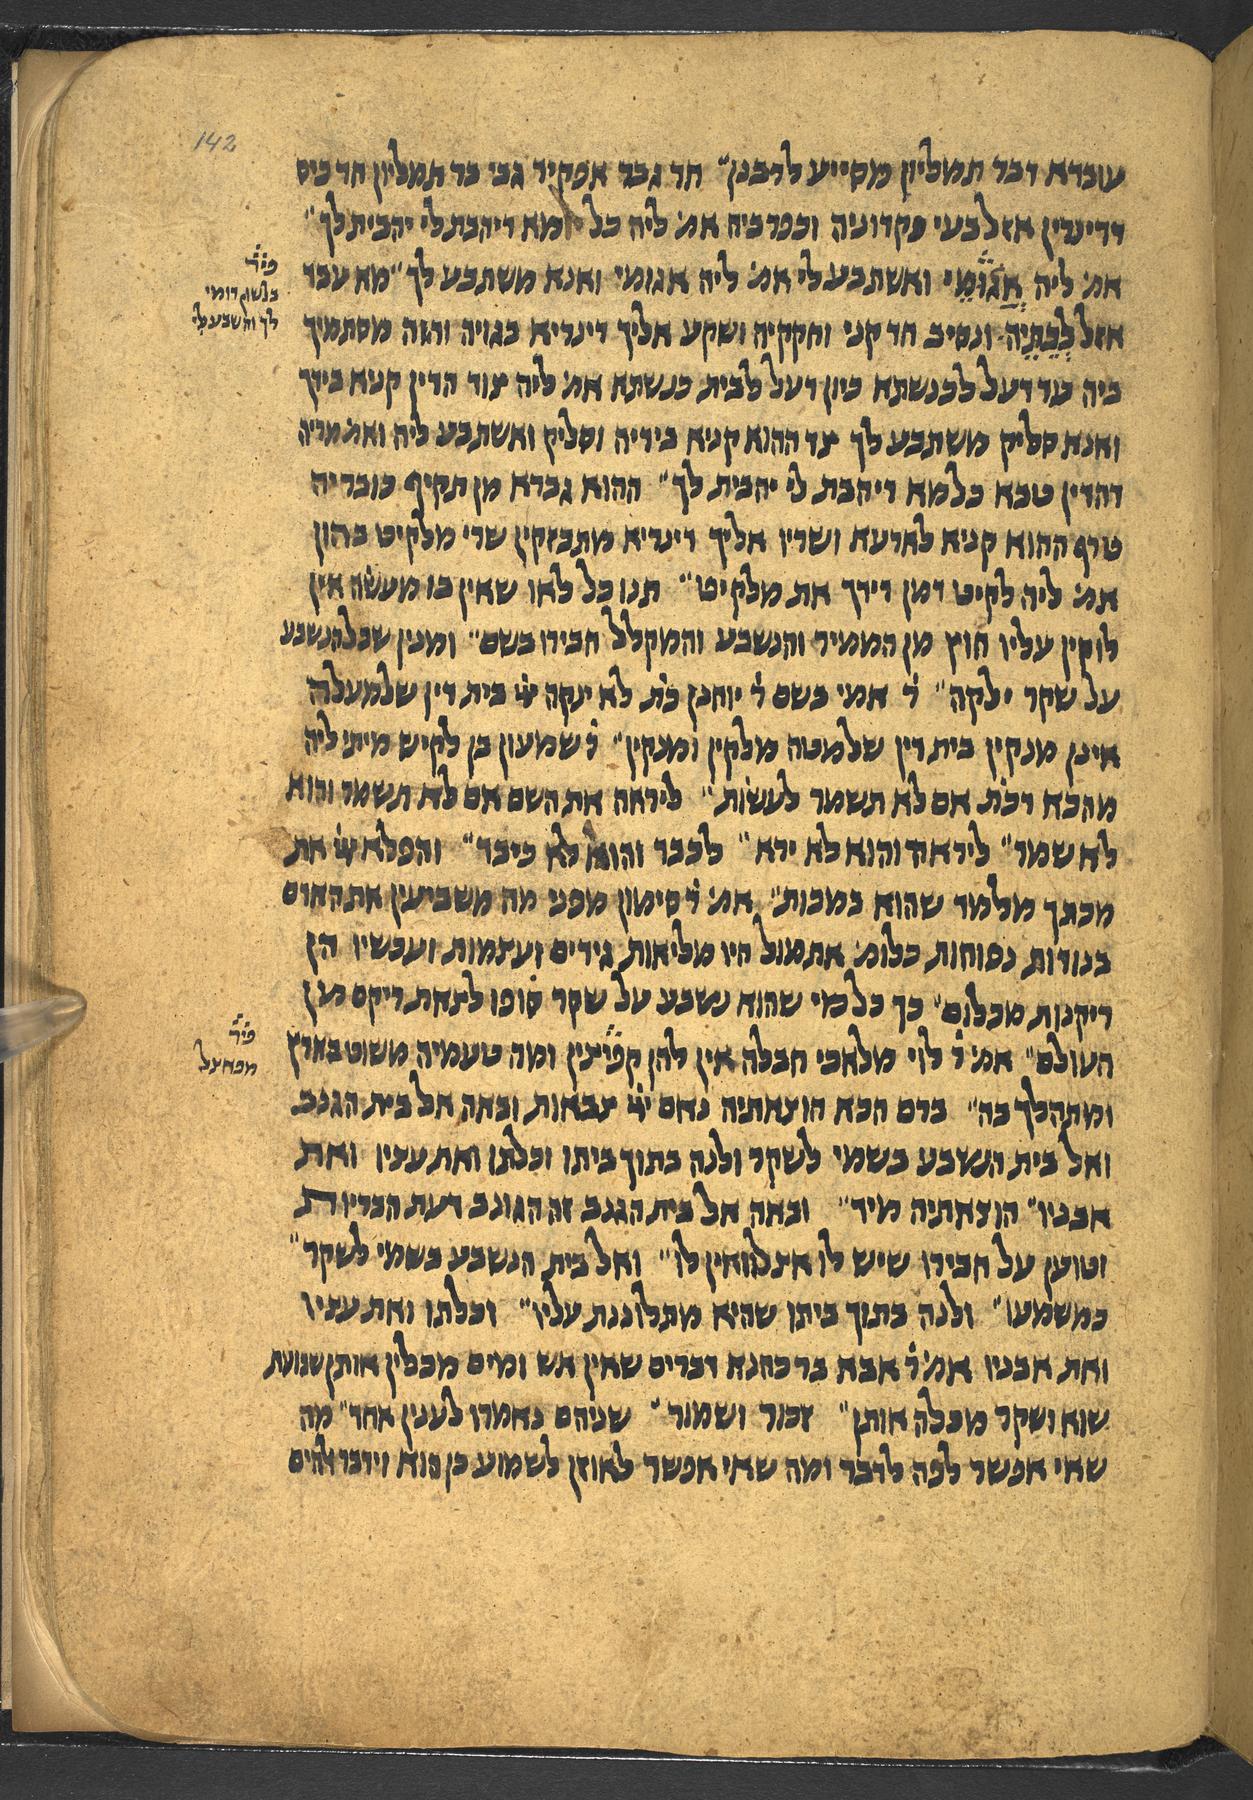 142
עובדא דבר תמליון מסייע לרבנן״ חד גבר אפקיד גבי בר תמליון חד כיס
דדינרין אזל בעי פקדוניה וכפר ביה אמ׳ ליה כל מא דיהבת לי יהבית לך״
אמ׳ ליה אֲגוּמֵי ואשתבע לי אמ׳ ליה אגומי ואנא משתבע לך״ מא עבד
אזל לְבֵתֵיה ונסיב חד קני וחקקיה ושקע אליך דינריא בגויה והוה מסתמיך
ביה עד דעל לכנשתא כיון דעל לבית כנשתא אמ׳ ליה צור הדין קניא בידך
ואנא סליק משתבע לך צר ההוא קניא בידיה וסליק ואשתבע ליה ואמ׳ מריה
דהדין טבא כלמא דיהבת לי יהבית לך״ ההוא גברא מן תקיף כובדיה
טרף ההוא קניא לארעא ושרין אליך דינריא מתבזקין שרי מלקיט בהון
אמ׳ ליה לקיט דמן דידך את מלקיט״ תנו כל לאו שאין בו מעשה אין
לוקין עליו חוץ מן הממיר והנשבע והמקלל חבירו בשם״ ומנין שכל הנשבע
על שקר ילקה״ ר׳ אמי בשם ר׳ יוחנן כת׳ לא ינקה יי׳ בית דין שלמעלה
אינן מנקין בית דין שלמטה מלקין ומנקין״ ר׳ שמעון בן לקיש מיתי ליה
מהכא דכת׳ אם לא תשמר לעשות״ ליראה את השם אם לא תשמר והוא
לא שמר״ ליראה והוא לא ירא״ לכבד והוא לא כיבד״ והפלא יי׳ את
מכתך מלמד שהוא במכות״ אמ׳ ר׳ סימון מפני מה משביעין את האדם
בנודות נפוחות כלומ׳ אתמול היו מליאות גידים ועצמות ועכשיו הן
ריקנות מכלום״ כך כל מי שהוא נשבע על שקר סופו לצאת ריקם מן
העולם״ אמ׳ ר׳ לוי מלאכי חבלה אין להן קפיצין ומה טעמיה משוט בארץ
ומתהלך בה״ ברם הכא הוצאתיה נאם יי׳ צבאות ובאה אל בית הגנב
ואל בית הנשבע בשמי לשקר ולנה בתוך ביתו וכלתו ואת עציו ואת
אבניו״ הוצאתיה מיד״ ובאה אל בית הגנב זה הגונב דעת הבריות
וטוען על חבירו שיש לו אצלו ואין לו״ ואל בית הנשבע בשמי לשקר״
כמשמעו״ ולנה בתוך ביתו שהיא מתלוננת עליו״ וכלתו ואת עציו
ואת אבניו אמ׳ ר׳ אבא בר כהנא דברים שאין אש ומים מכלין אותן שבועת
שוא ושקר מכלה אותן״ זכור ושמור״ שניהם נאמרו לענין אחד״ מה
שאי אפשר לפה לדבר ומה שאי אפשר לאוזן לשמוע
פי׳
בלשון רומי
לך והשבע לי
פי׳
מפאצל